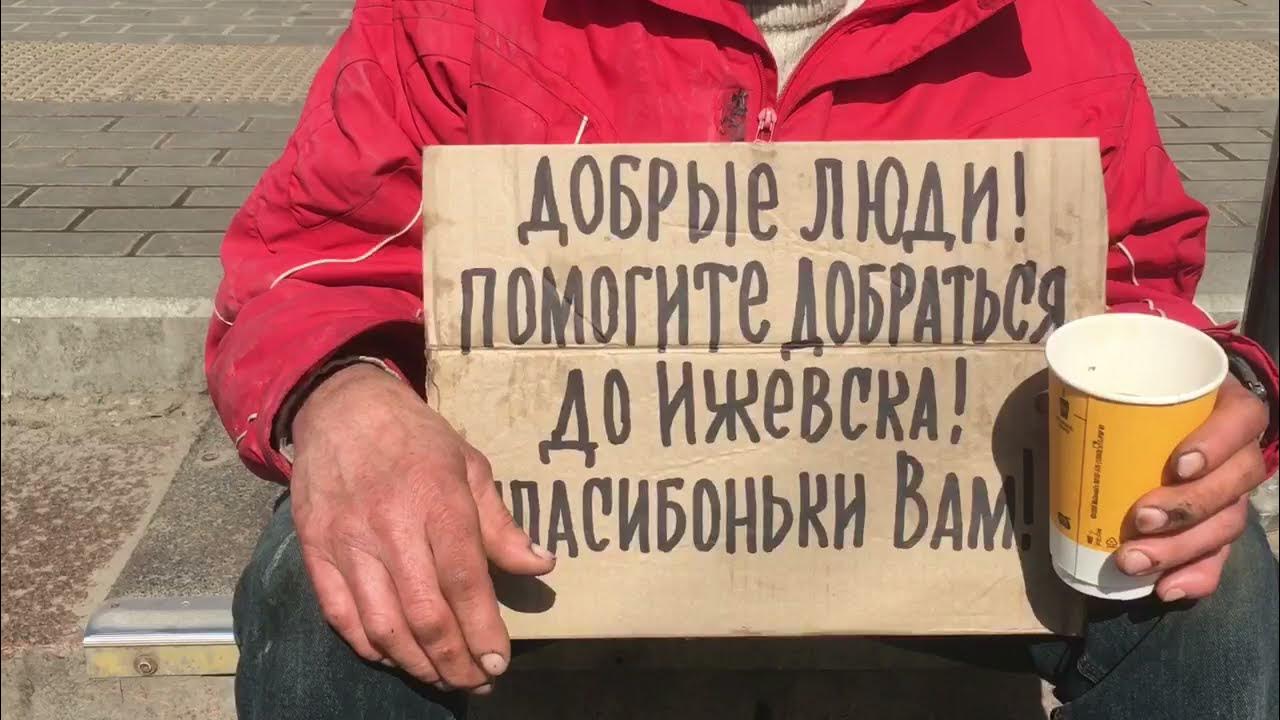 ДОБРЫЕ ЛЮДИ!
ПОМОГИТЕ ДОБРАТЬСЯ
ДО ИЖЕВСКА!
СПАСИБОНЬКИ ВАМ!